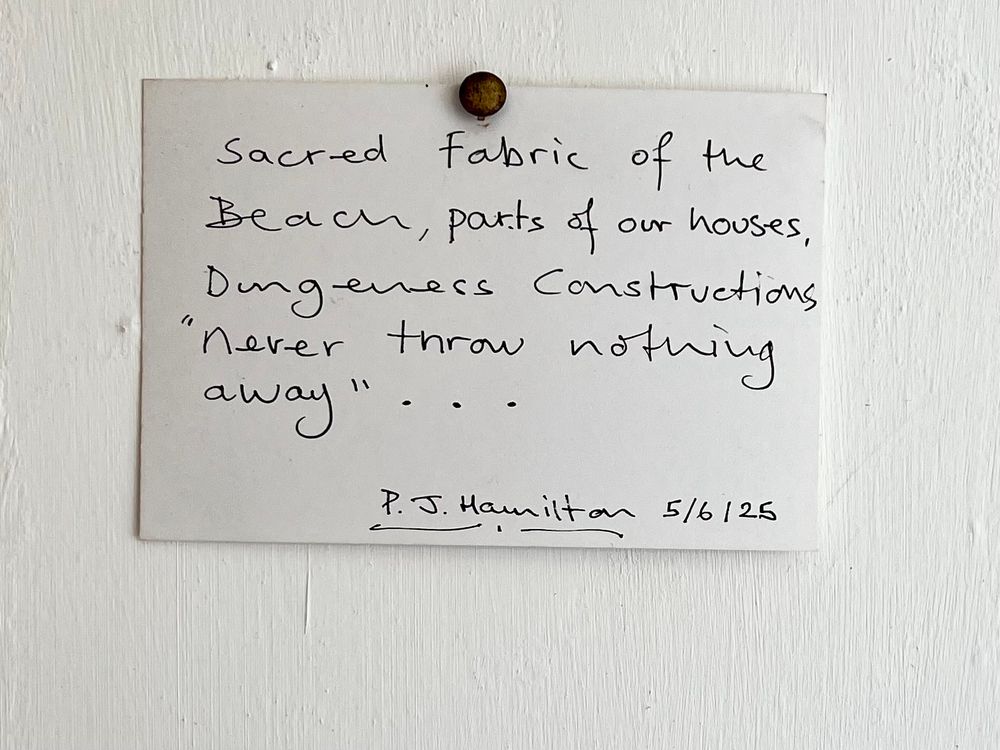 Sacred Fabric of the
Beach, parts of our houses,
Dungeness Constructions
"never throw nothing
away" . . .
P. J. Hamilton 5/6/25